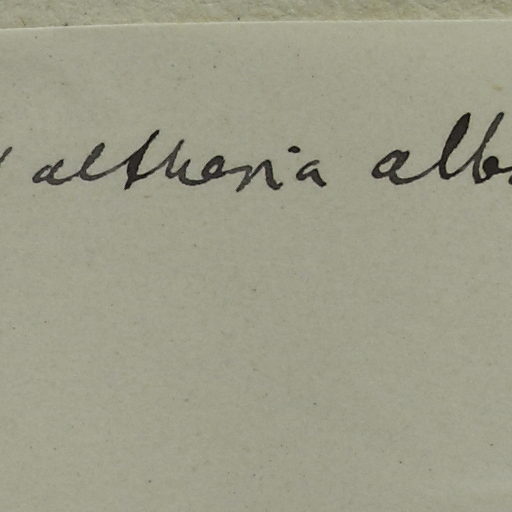 altheria alb